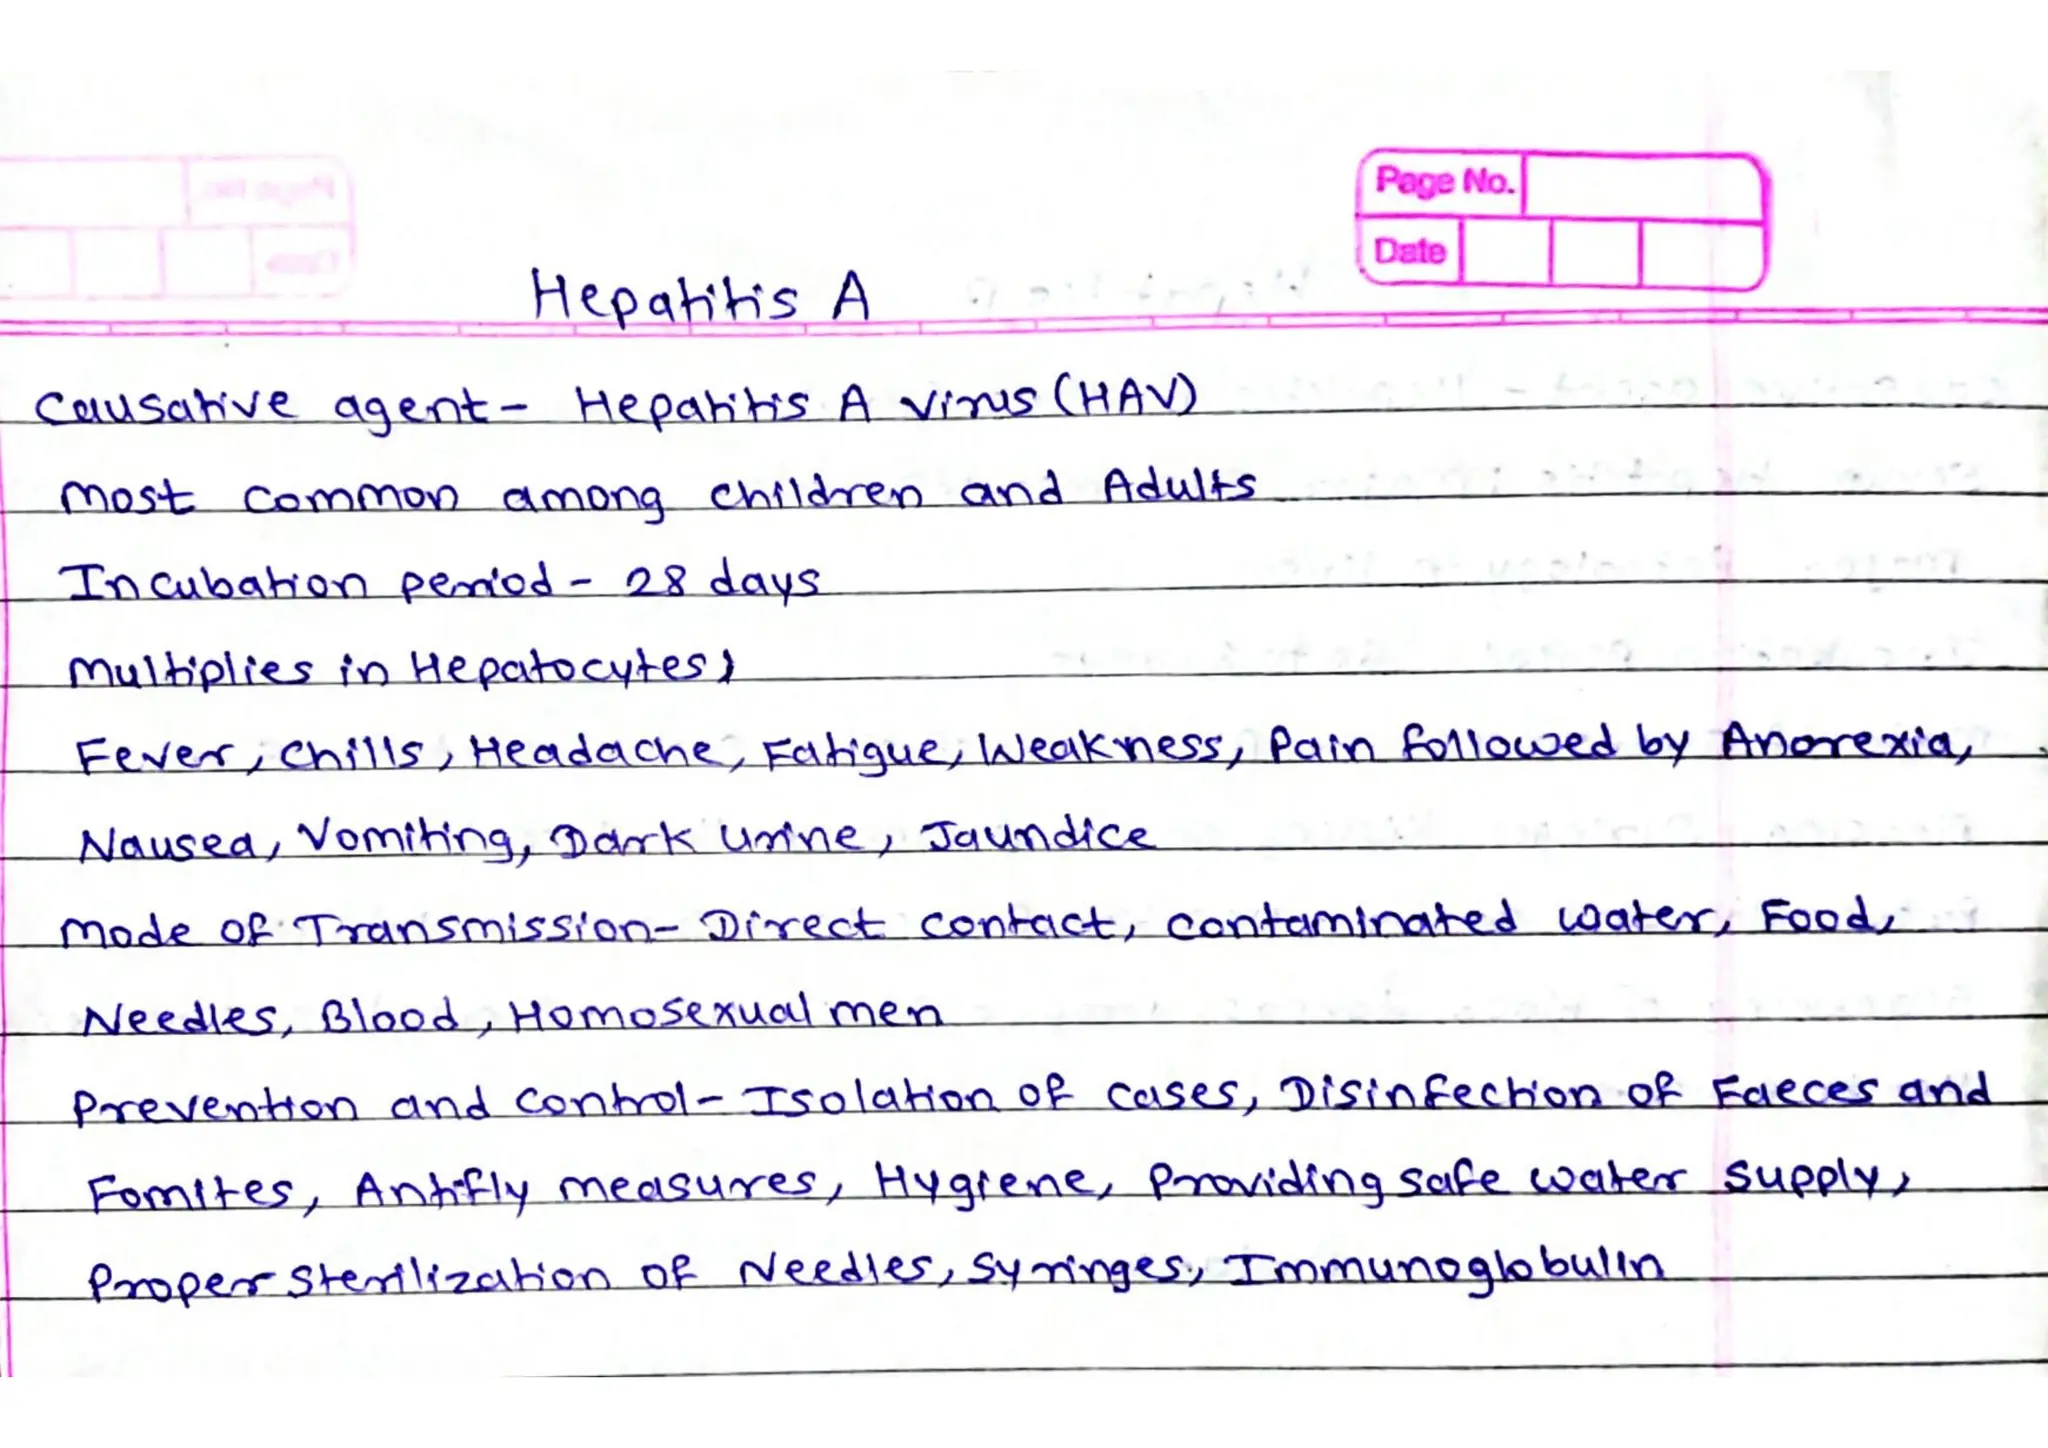 Page No.
Date
Hepatitis A
Causative agent- Hepatitis A virus (HAV)
Most common among children and Adults
Incubation period - 28 days
Multiplies in Hepatocytes,
Fever, Chills, Headache, Fatigue, Weakness, Pain followed by Anorexia,
Nausea, Vomiting, Dark urine, Jaundice
Mode of Transmission- Direct contact, contaminated water, Food,
Needles, Blood, Homosexual men
Prevention and control- Isolation of cases, Disinfection of Faeces and
Fomites, Antifly measures, Hygiene, Providing safe water supply,
Proper sterilization of Needles, Syringes, Immunoglobulin